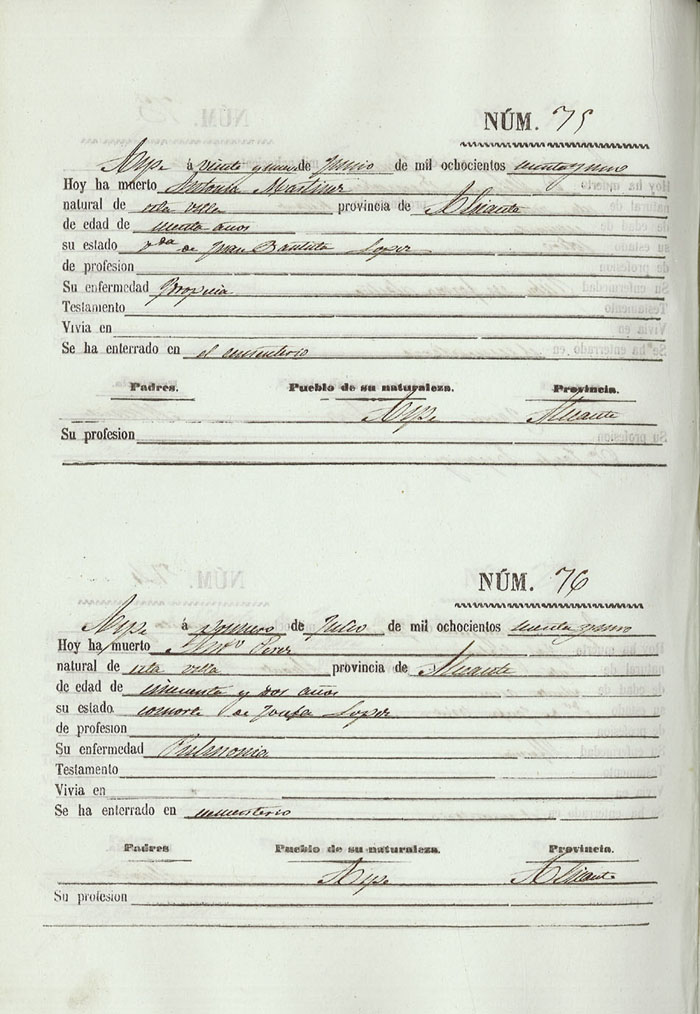 NÚM. 75
Aspe á veinte y nueve de Junio de mil ochocientos
Hoy ha muerto Antonia Martinez
natural de esta villa provincia de Alicante
de edad de años
su estado Vda de Juan Bautista Lopez
de profesion
Su enfermedad
Testamento
Vivia en
Se ha enterrado en el cementerio
Padres. Pueblo de su naturaleza. Provincia.
Aspe Alicante
Su profesion
NÚM. 76
Aspe á primero de Julio de mil ochocientos
Hoy ha muerto Perez
natural de esta villa provincia de Alicante
de edad de cincuenta y dos años
su estado consorte de Josefa Lopez
de profesion
Su enfermedad Pulmonia
Testamento
Vivia en
Se ha enterrado en cementerio
Padres Pueblo de su naturaleza. Provincia.
Aspe Alicante
Su profesion